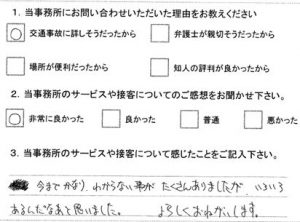 1. 当事務所にお問い合わせいただいた理由をお教えください
交通事故に詳しそうだったから 弁護士が親切そうだったから
場所が便利だったから 知人の評判が良かったから
2. 当事務所のサービスや接客についてのご感想をお聞かせ下さい。
非常に良かった 良かった 普通 悪かった
3. 当事務所のサービスや接客について感じたことをご記入下さい。
今まで かなり わからない事が たくさんありましたが いろいろ
あるんだなあと思いました。 よろしくおねがいします。